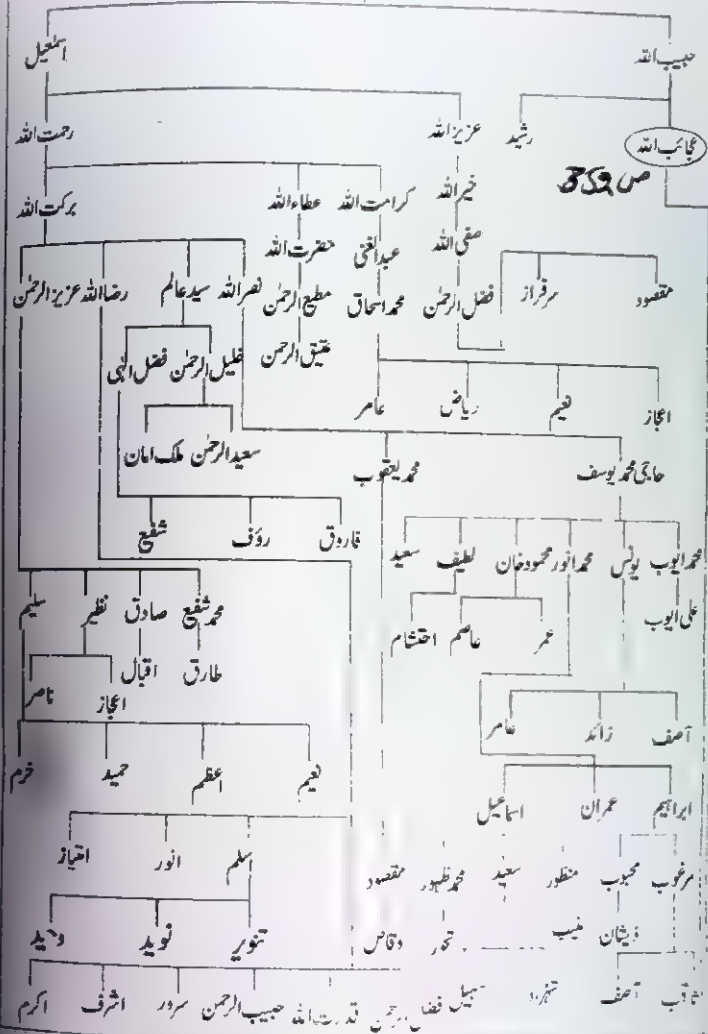 حبیب اللہ اسمٰعیل
عجائب اللہ رشید عزیز اللہ رحمت اللہ
ص 352
خیر اللہ کرامت اللہ عطاء اللہ برکت اللہ
صفی اللہ عبدالغنی حضرت اللہ
مقصود سرفراز فضل الرحمٰن محمد اسحاق مطیع الرحمٰن نصر اللہ سید عالم رضا اللہ عزیز الرحمٰن
عتیق الرحمٰن خلیل الرحمٰن فضل الٰہی
اعجاز نعیم ریاض عامر
سعید الرحمٰن ملک امان
حاجی محمد یوسف محمد یعقوب
فاروق رؤف شفیع
محمد ایوب یونس محمد انور محمود خان لطیف سعید
محمد شفیع صادق نظیر سلیم
علی ایوب عمر عاصم احتشام
طارق اقبال اعجاز ناصر
آصف زائد عامر
نعیم اعظم حمید خرم
ابراہیم عمران اسماعیل
اسلم انور امتیاز
مرغوب محبوب منظور سعید محمد ظہور مقصود
ذیشان منیب وقاص
تنویر نوید وحید
ثاقب آصف فضل الرحمن قدرت اللہ حبیب الرحمن سرور اشرف اکرم